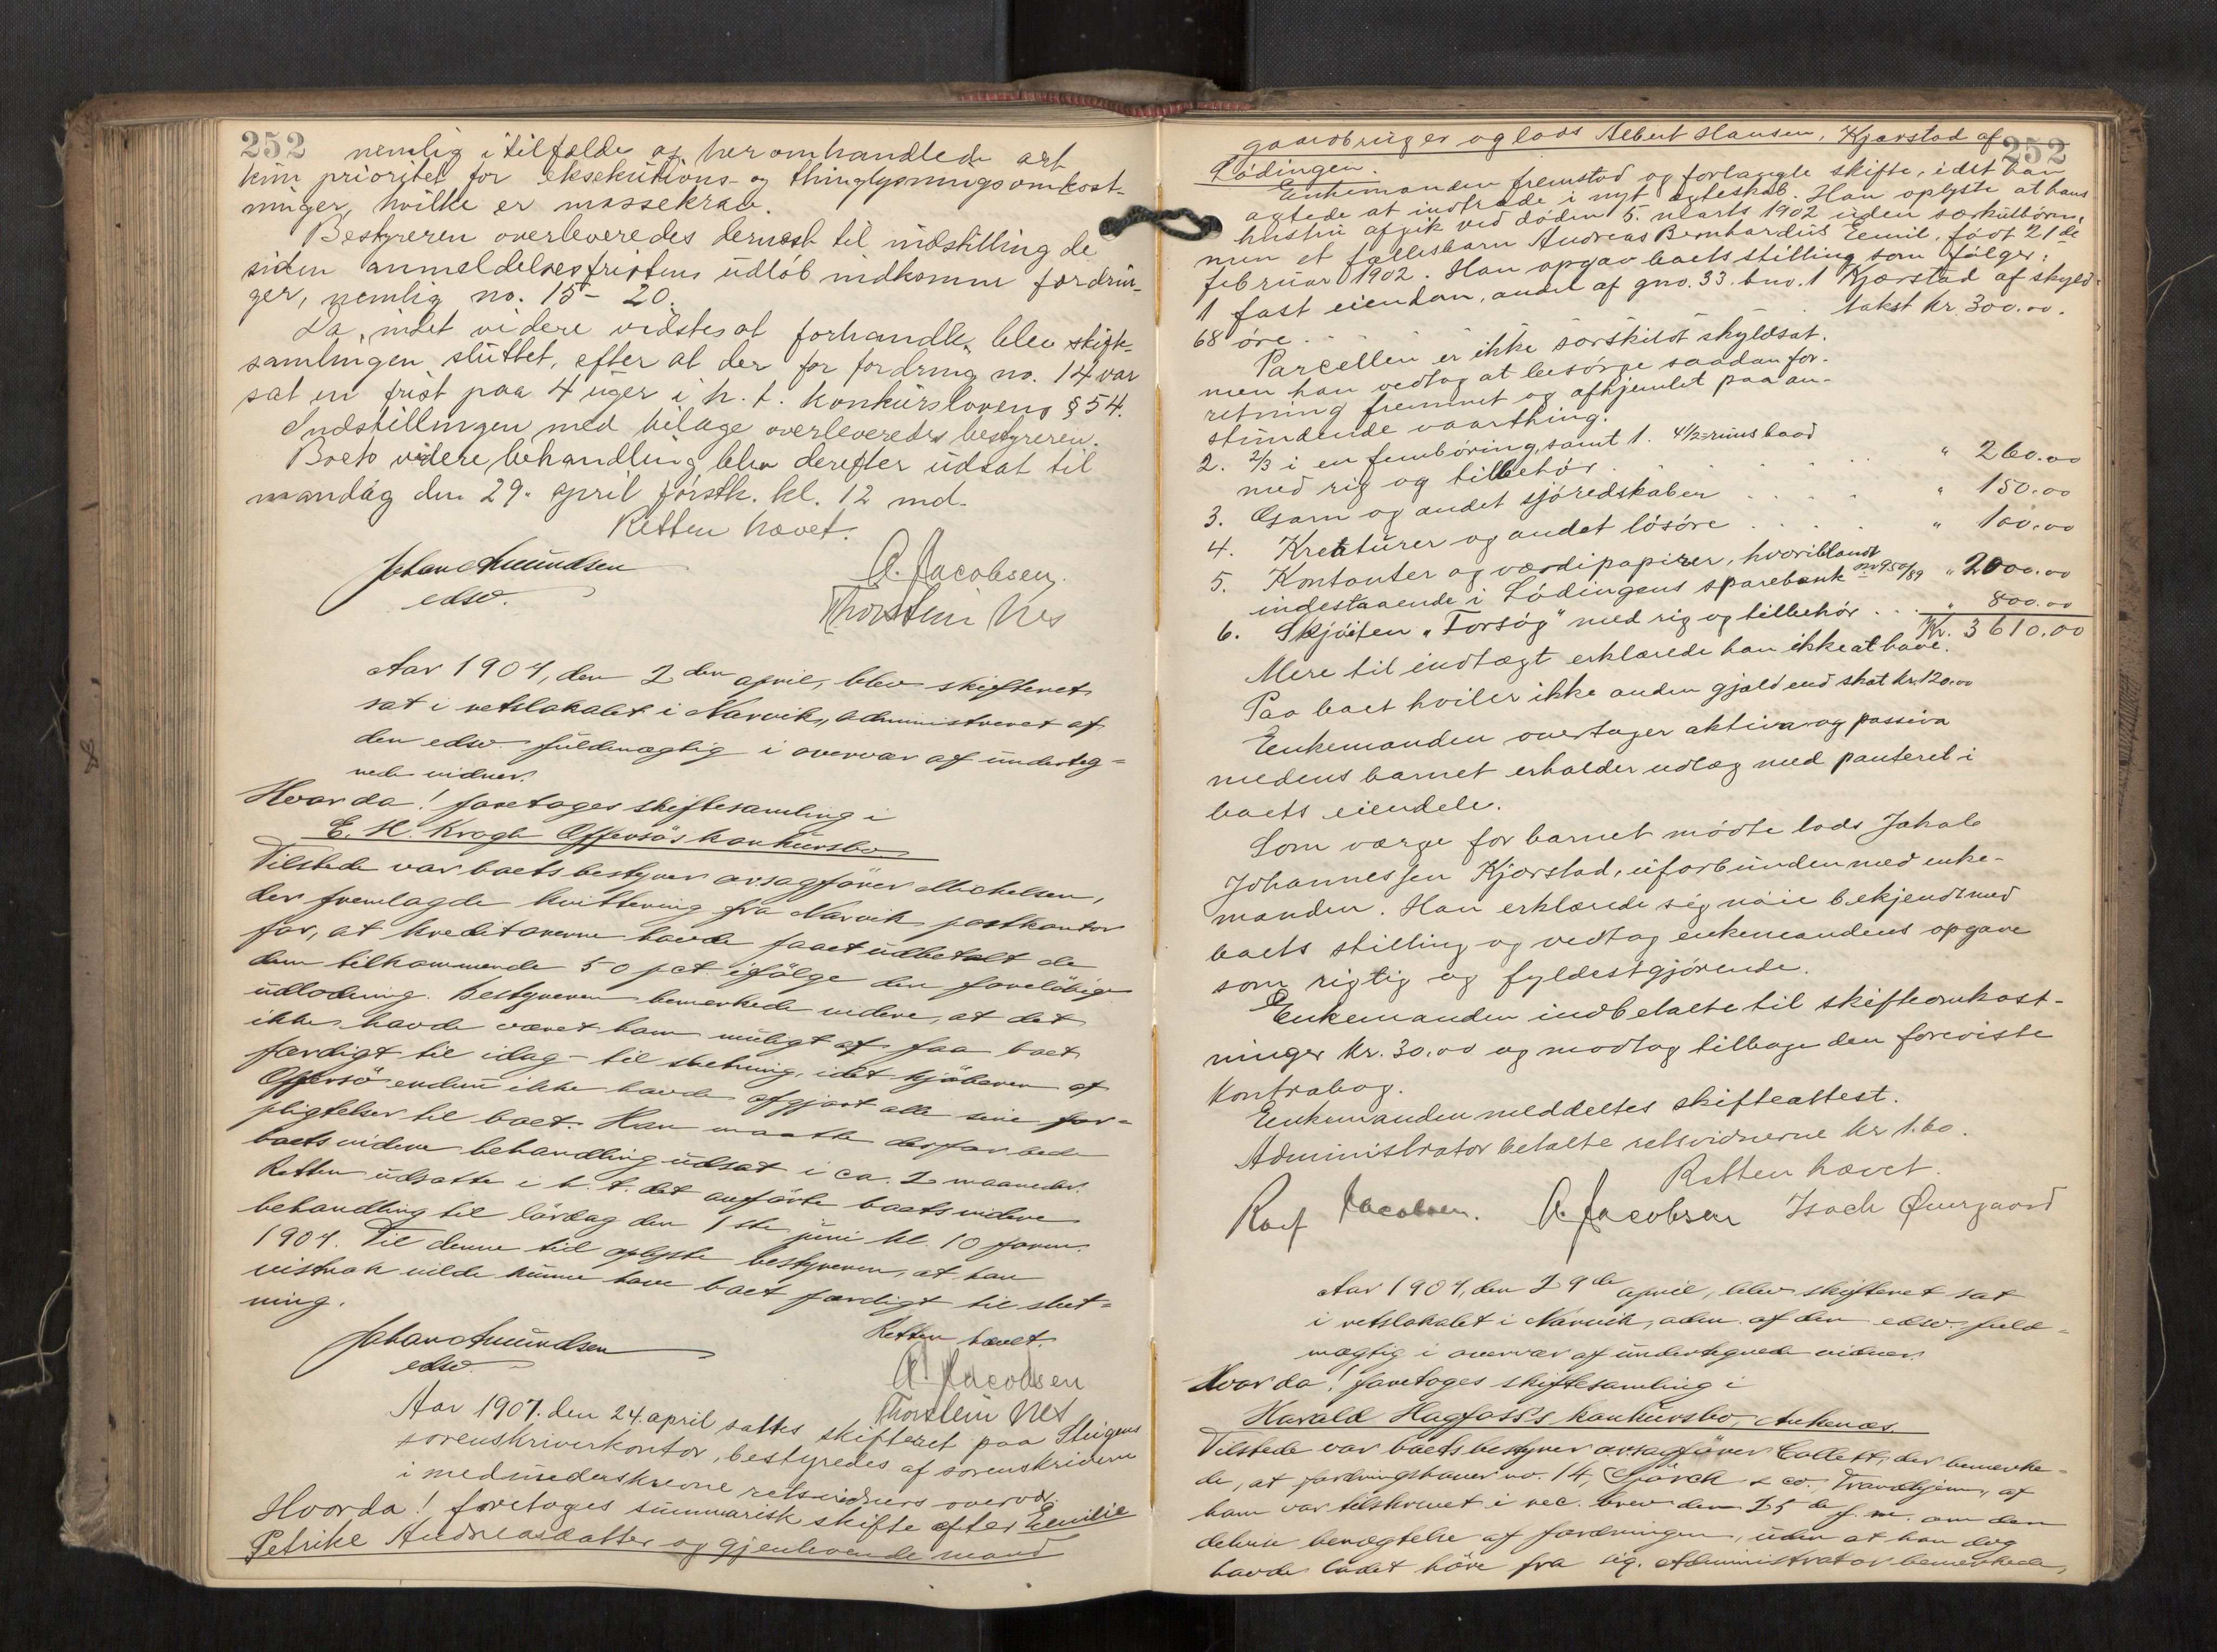 252
nemlig i tilfælde af her omhandlede art
kun prioritet for eksekutions- og thinglysningsomkost-
ninger, hvilke er massekrav.
Bestyreren overleveredes dernæst til indstilling de
siden anmeldelsesfristens udløb indkomne fordrin-
ger, nemlig no. 15 - 20.
Da intet videre vidstes at forhandle, blev skifte-
samlingen sluttet, efter at der for fordring no. 14 var
sat en frist paa 4 uger i h. t. konkurslovens § 54.
Indstillingen med bilage overleveredes bestyreren.
Boets videre behandling blev derefter udsat til
mandag den 29. april førstk. kl. 12 md.
Retten hævet.
Johan Amundsen
edsv.
A. Jacobsen.
Thorstein Nes
Aar 1907, den 2den april, blev skifteret
sat i retslokalet i Narvik, administreret af
den edsv. fuldmægtig i overvær af underteg-
nede vidner.
Hvorda! foretoges skiftesamling i
E. H. Krogh Offersøs konkursbo
Tilstede var boets bestyrer orsagfører Michelsen,
der fremlagde kvittering fra Narvik postkontor
for, at kreditorerne havde faaet udbetalt de
dem tilkommende 50 pct. ifølge den foreløbige
udlodning. Bestyreren bemerkede videre, at det
ikke havde været ham muligt at faa boet
færdigt til idag - til slutning, idet kjøberen af
Offersø endnu ikke havde afgjort alle sine for-
pligtelser til boet. Han maatte derfor bede
boets videre behandling udsat i ca. 2 maaneder.
Retten udsatte i h. t. det anførte boets videre
behandling til lørdag den 1ste juni kl. 10 form.
1907. Til denne tid oplyste bestyreren, at han
vistnok vilde kunne have boet færdigt til slut-
ning.
Retten hævet.
Johan Amundsen
edsv.
A. Jacobsen
Thorstein Nes
Aar 1907. den 24. april sattes skifteret paa Steigens
sorenskriverkontor, bestyredes af sorenskriveren
i medunderskrevne retsvidners overvær.
Hvorda! foretoges summarisk skifte efter Emilie
Petrike Andreasdatter og gjenlevende mand
252
gaardbruger og lods Albert Hansen, Kjærstad af
Lødingen.
Enkemanden fremstod og forlangte skifte, idet han
agtede at indtræde i nyt ægteskab. Han oplyste at hans
hustru afgik ved døden 5. marts 1902 uden særkulbørn,
men et fællesbarn Andreas Bernhardus Emil, født 21de
februar 1902. Han opgav boets stilling som følger:
1 fast eiendom, andel af gno. 33. bno. 1 Kjærstad af skyld-
68 øre . . . takst kr. 300.00.
Parcellen er ikke særskildt skyldsat.
men han vedtog at besørge saadan for-
retning fremmet og afhjemlet paa an-
stundende vaarthing.
2. 2/3 i en fembøring, samt 1. 4 1/2=rums baad
med rig og tilbehør . . . " 260.00
3. Garn og andet sjøredskaber . . . " 150.00
4. Kreaturer og andet løsøre . . . " 100.00
5. Kontanter og værdipapirer, hvoriblandt
indestaaende i Lødingens sparebank no 950/89 " 2000.00
6. Skjøiten "Forsøg" med rig og tilbehør . . . " 800.00
Kr. 3610.00
Mere til indtægt erklærede han ikke at have.
Paa boet hviler ikke anden gjæld end skat kr. 120.00
Enkemanden overtager aktiva og passiva
medens barnet erholder udlæg med panteret i
boets eiendele.
Som værge for barnet mødte lods Jakob
Johannessen Kjærstad, uforbunden med enke-
manden. Han erklærede sig nøie bekjendt med
boets stilling og vedtog enkemandens opgave
som rigtig og fyldestgjørende.
Enkemanden indbetalte til skifteomkost-
ninger kr. 30.00 og modtog tilbage den foreviste
kontrabog.
Enkemanden meddeltes skifteattest.
Administrator betalte retsvidnerne kr 1.60.
Retten hævet.
Jacobsen. A. Jacobsen Isach
Aar 1907, den 29de april, blev skifteret sat
i retslokalet i Narvik, adm. af den edsv. fuld-
mægtig i overvær af undertegnede vidner.
Hvorda! foretoges skiftesamling i
Harald Hagfoss's konkursbo, Ankenæs.
Tilstede var boets bestyrer orsagfører Collett, der bemerke-
de, at fordringshaver no. 14, & co. Trondhjem, af
ham var tilskrevet i rec. brev den 25de f. m. om den
delvise benægtelse af fordringen, uden at han dog
havde ladet høre fra sig. Administrator bemerkede,